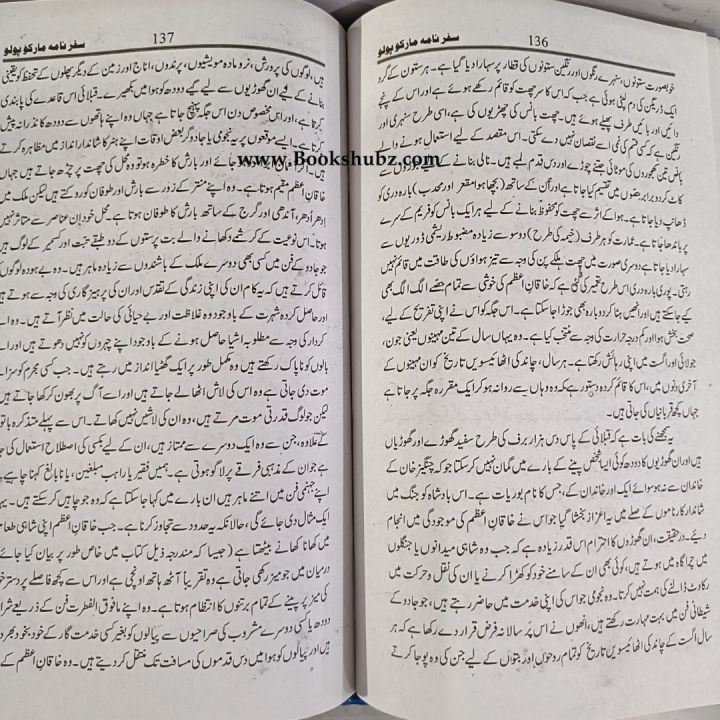 136
سفر نامہ مارکو پولو
خوبصورت ستونوں، سنہرے رنگوں اور رنگین ستونوں کی قطار پر سہارا دیا گیا ہے۔ ہر ستون کے گرد
ایک ڈریگن کی دم لپٹی ہوئی ہے جب کہ اس کا سر چھت کو قائم رکھے ہوئے ہے اور اس کے پنجے
دائیں اور بائیں طرف پھیلے ہوئے ہیں۔ چھت بانس کی چھڑیوں کی ہے، اسی طرح سنہری اور
رنگین ہے کہ کسی قسم کی نمی اسے نقصان نہیں دے سکتی۔ اس مقصد کے لیے استعمال ہونے والے
بانس تین کی موٹائی جتنے چوڑے اور دس قدم لمبے ہیں۔ نالی بنانے کے لیے
کاٹ کر دو برابر حصوں میں تقسیم کیا جاتا ہے اور اُن کے ساتھ (بچھا ہوا مقعر اور محدب) بارہ دری کو
ڈھانپ دیا جاتا ہے۔ ہوا کے اثر سے چھت کو محفوظ بنانے کے لیے ہر ایک بانس کو فریم کے سرے
پر باندھا جاتا ہے۔ عمارت کو ہر طرف (خیمہ کی طرح) دو سو سے زیادہ مضبوط ریشمی ڈوریوں سے
سہارا دیا جاتا ہے دوسری صورت میں چھت ہلکے پن کی وجہ سے تیز ہواؤں کی طاقت میں قائم نہیں
رہتی۔ پوری بارہ دری اس طرح تعمیر کی گئی ہے کہ خاقانِ اعظم کی خوشی سے تمام حصے الگ الگ بھی
کیے جاسکتے ہیں اور انھیں بنا کر دوبارہ بھی جوڑا جا سکتا ہے۔ اس جگہ کو اس نے اپنی تفریح کے لیے،
صحت بخش ہوا اور کم درجہ حرارت کی وجہ سے منتخب کیا ہے۔ وہ یہاں سال کے تین مہینوں یعنی جون،
جولائی اور اگست میں اپنی رہائش رکھتا ہے۔ ہر سال، چاند کی اٹھائیسویں تاریخ کو ان مہینوں کے
آخری دنوں میں، اس کا قائم کردہ دستور ہے کہ وہ وہاں سے روانہ ہو کر ایک مقررہ جگہ پر جاتا ہے
جہاں کچھ قربانیاں کی جاتی ہیں۔
یہ سمجھنے کی بات ہے کہ قبلائی کے پاس دس ہزار برف کی طرح سفید گھوڑے اور گھوڑیاں
ہیں اور ان گھوڑیوں کا دودھ کوئی ایسا شخص پینے کے بارے میں گمان نہیں کر سکتا جو کہ چنگیز خان کے
خاندان سے نہ ہو سوائے ایک اور خاندان کے، جس کا نام بوریات ہے۔ اس بادشاہ کو جنگ میں
شاندار کارناموں کے صلے میں یہ اعزاز بخشا گیا جو اس نے خاقانِ اعظم کی موجودگی میں انجام
دیے۔ درحقیقت، ان گھوڑوں کا احترام اس قدر زیادہ ہے کہ جب وہ شاہی میدانوں یا جنگلوں
میں چراگاہ میں ہوتے ہیں، کوئی بھی ان کے سامنے خود کو کھڑا کرنے یا ان کی نقل و حرکت میں
رکاوٹ ڈالنے کی ہمت نہیں کرتا۔ وہ نجومی جو اس کی اپنی خدمت میں حاضر رہتے ہیں، جو جادو کے
شیطانی فن میں بہت مہارت رکھتے ہیں، انھوں نے اس پر سالانہ فرض قرار دے رکھا ہے کہ ہر
سال اگست کے چاند کی اٹھائیسویں تاریخ کو تمام روحوں اور بتوں کے لیے جن کی وہ پوجا کرتے
137
سفر نامہ مارکو پولو
ہیں، لوگوں کی پرورش، نر و مادہ مویشیوں، پرندوں، اناج اور زمین کے دیگر پھلوں کے تحفظ کو یقینی
بنانے کے لیے ان گھوڑیوں سے لیے گئے دودھ کو ہوا میں بکھیرے۔ قبلائی اس قاعدے کی پابندی
کرتا ہے، اور اس مخصوص دن اس جگہ پہنچ جاتا ہے جہاں وہ اپنے ہاتھوں سے دودھ کا نذرانہ پیش
کرتا ہے۔ ایسے موقعوں پر یہ نجومی یا جادوگر بعض اوقات اپنے ہنر کا شاندار انداز میں مظاہرہ کرتے
ہیں۔ جائے اور بارش کا خطرہ ہو تو وہ محل کی چھت پر چڑھ جاتے ہیں جہاں
خاقانِ اعظم مقیم ہوتا ہے۔ وہ اپنے منتر کے زور سے بارش اور طوفان کو روکتے ہیں لیکن ملک میں
اِدھر اُدھر، آندھی اور گرج کے ساتھ بارش کا طوفان ہوتا ہے۔ محل خود اِن عناصر سے متاثر نہیں
ہوتا۔ اس نوعیت کے کرشمے دکھانے والے بت پرستوں کے دو طبقے تبت اور کسمیر کے لوگ ہیں
جو جادو کے فن میں کسی بھی دوسرے ملک کے باشندوں سے زیادہ ماہر ہیں۔ وہ بے ہودہ لوگوں کو
قائل کرتے ہیں کہ یہ کام ان کی اپنی زندگی کے تقدس اور ان کی پرہیز گاری کی وجہ سے ہوتے ہیں
اور حاصل کردہ شہرت کے باوجود وہ غلاظت اور بے حیائی کی حالت میں نظر آتے ہیں۔ وہ اپنے
کردار کی وجہ سے مطلوبہ اشیا حاصل ہونے کے باوجود اپنے چہروں کو نہیں دھوتے ہیں اور اپنے
بالوں کو ناپاک رکھتے ہیں وہ مکمل طور پر ایک گھٹیا انداز میں رہتے ہیں۔ جب کسی مجرم کو سزائے
موت دی جاتی ہے وہ اس کی لاش اٹھا لے جاتے ہیں اور اسے آگ پر بھون کر کھا جاتے ہیں
لیکن جو لوگ قدرتی موت مرتے ہیں، وہ ان کی لاشیں نہیں کھاتے۔ اس سے پہلے متذکرہ
کے علاوہ، جن سے وہ ایک دوسرے سے ممتاز ہیں، ان کے لیے بکسی کی اصطلاح استعمال کی
ہے جو ان کے مذہبی فرقے پر لاگو ہوتی ہے۔ ہمیں فقیر یا راہب مبلغین، یا نابالغ کہنا چاہیے
اپنے جہنمی فن میں اتنے ماہر ہیں ان بارے میں کہا جا سکتا ہے کہ وہ جو چاہیں کر سکتے ہیں۔
ایک مثال دی جائے گی، حالانکہ یہ حدود سے تجاوز کرنا ہے۔ جب خاقانِ اعظم اپنی شاہی طعام
میں کھانا کھانے بیٹھتا ہے (جیسا کہ مندرجہ ذیل کتاب میں خاص طور پر بیان کیا جائے
درمیان میں جو میز رکھی جاتی ہے وہ تقریباً آٹھ ہاتھ اونچی ہے اور اس سے کچھ فاصلے پر دستر
کی میز پر پینے کے تمام برتنوں کا انتظام ہوتا ہے۔ وہ اپنے مافوق الفطرت فن کے ذریعے
دودھ یا کسی دوسرے مشروب کی صراحیوں سے پیالوں کو بغیر کسی خدمت گار کے خود بخود بھر
ہیں اور پیالوں کو ہوا میں دس قدموں کی مسافت تک منتقل کر دیتے ہیں۔ وہ خاقانِ اعظم کے
www.Bookshubz.com